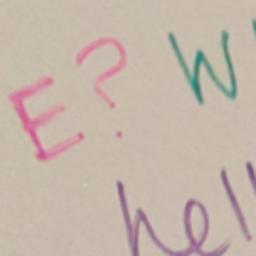 E? W
hell